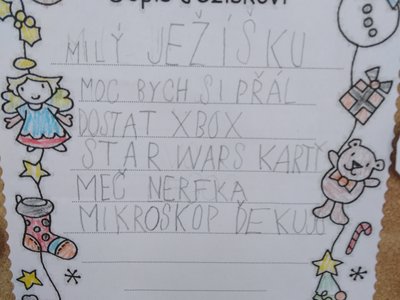 Dopis Ježíškovi
MILÝ JEŽÍŠKU
MOC BYCH SI PŘÁL
DOSTAT XBOX
STAR WARS KARTY
MEČ NERFKA
MIKROSKOP ĎEKUJU